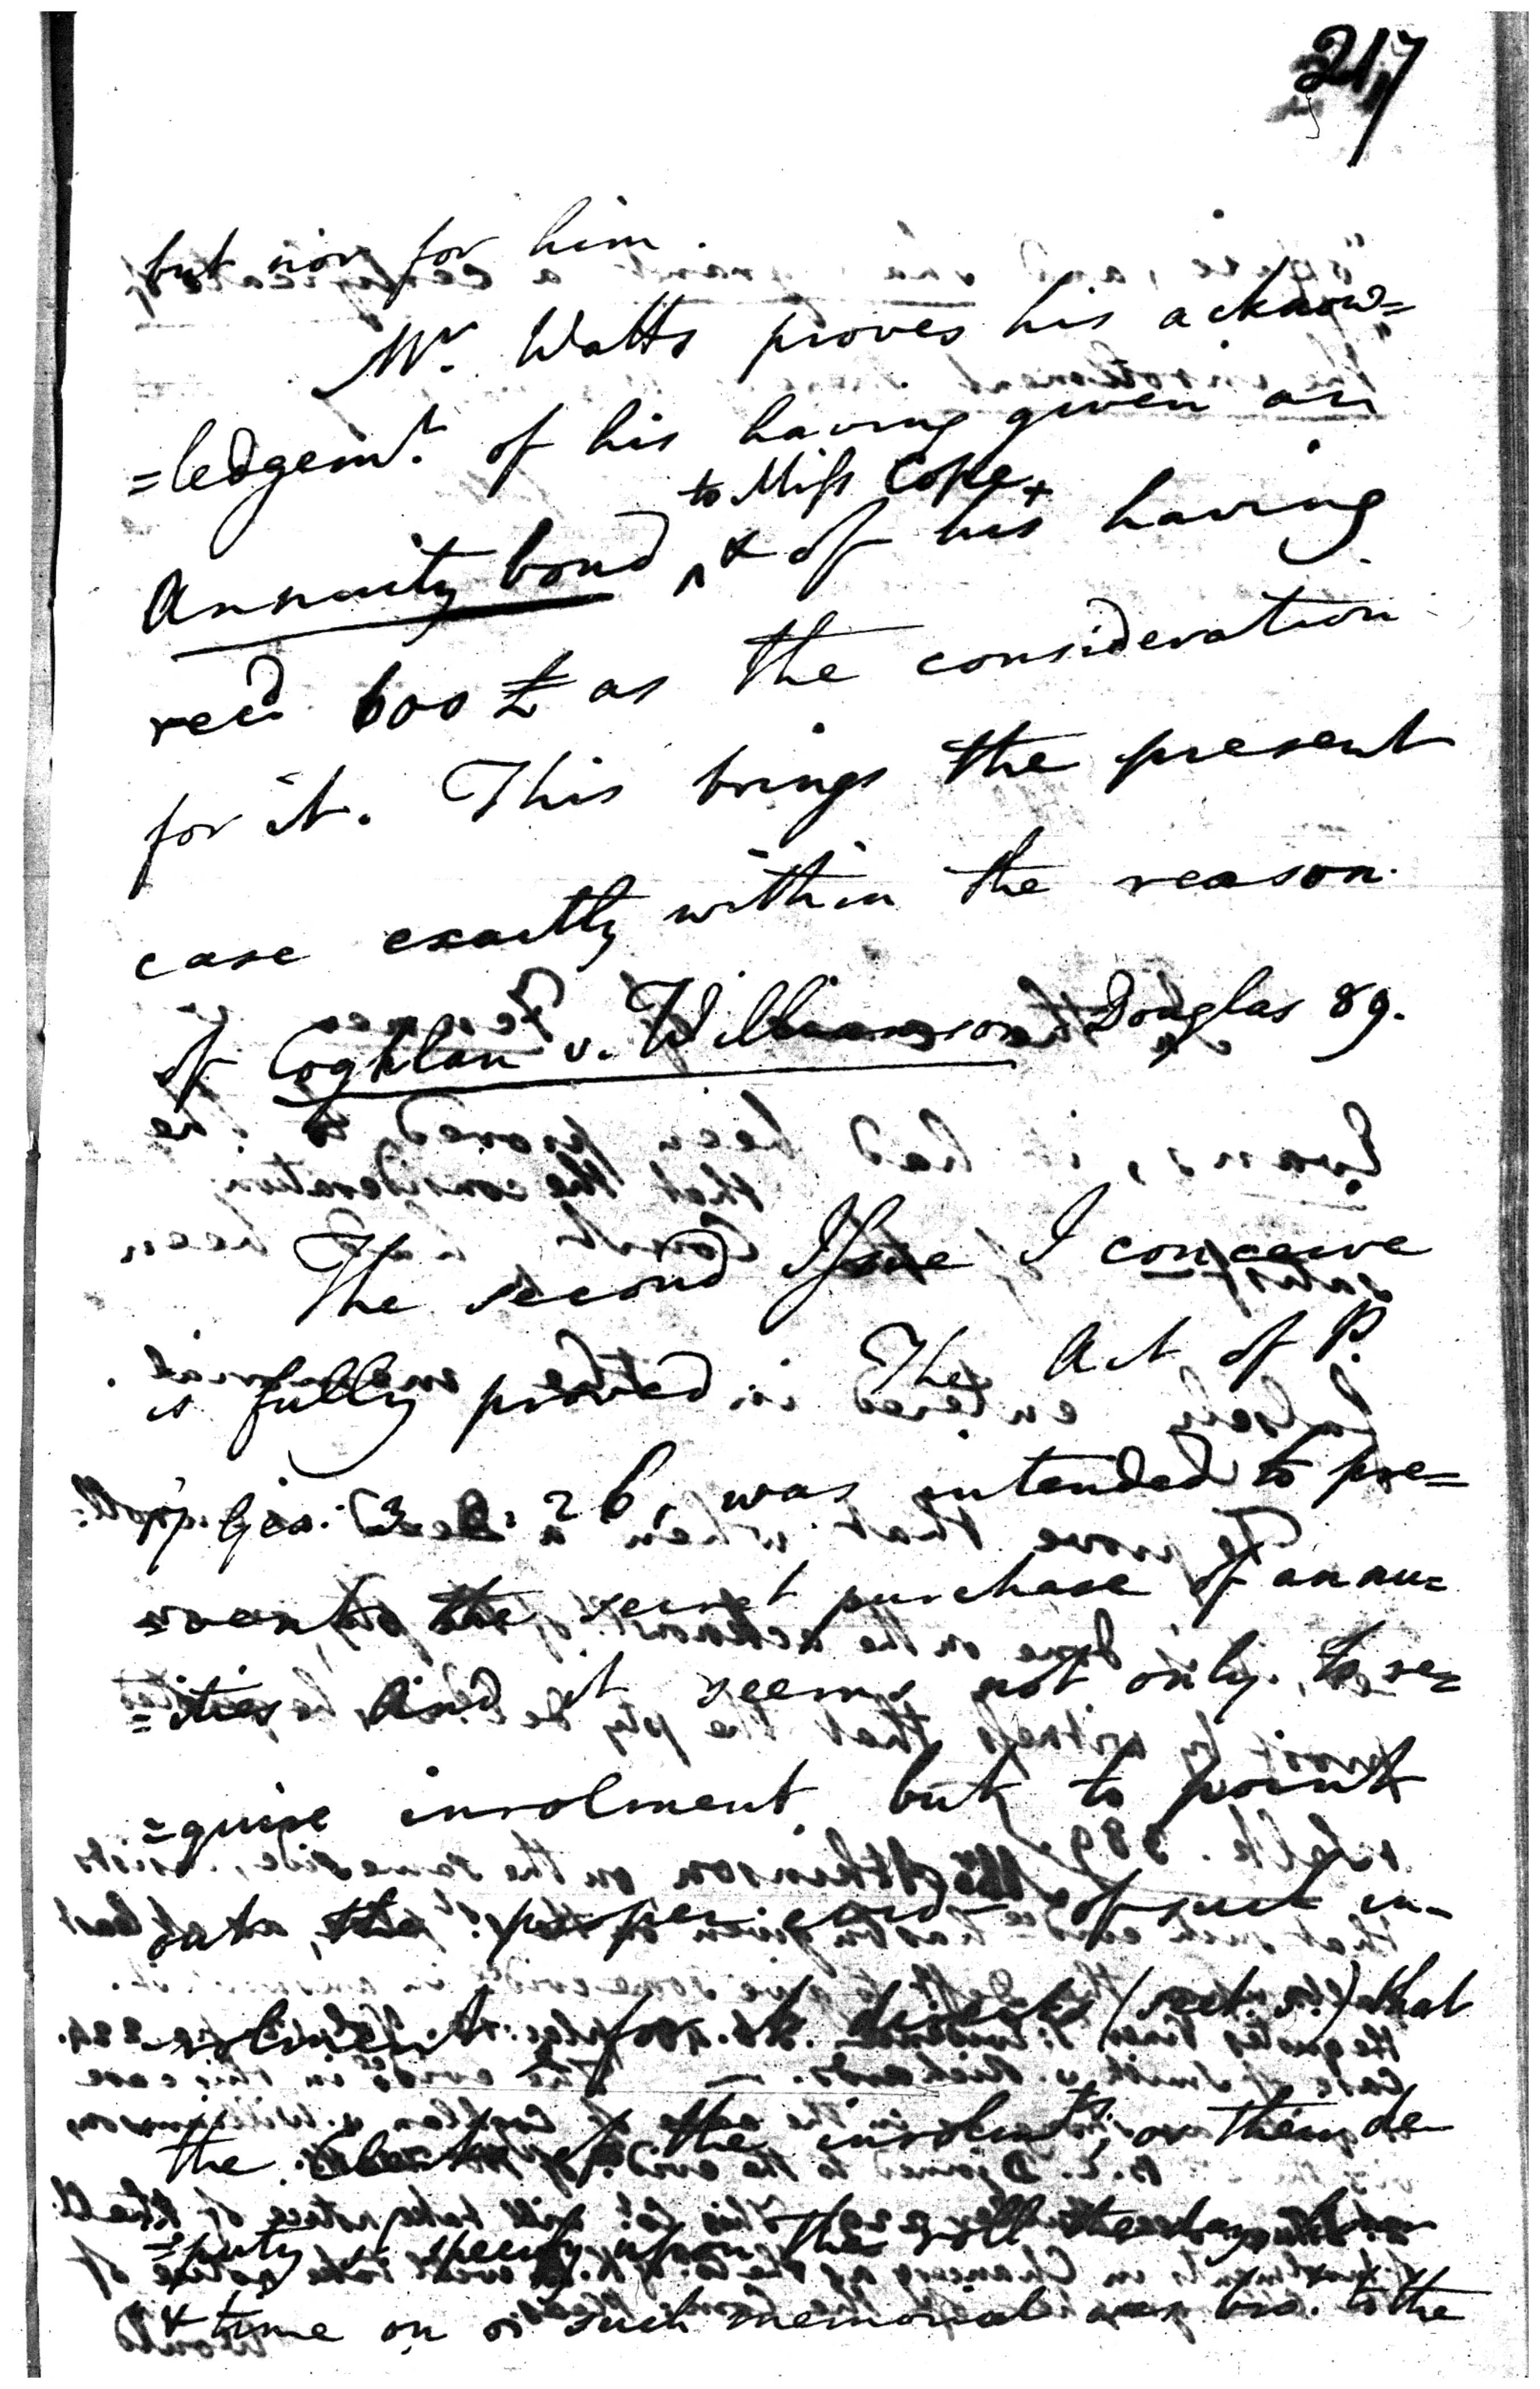 217
but not for him.
Mr. Watts proves his acknow=
=ledgemt. of his having given an
to Miss Cope +
Annuity bond ^ & of his having
recd. 600 £ as the consideration
for it. This brings the present
case exactly within the reason
of Coghlan v. Williamson Douglas 89.
The second Issue I conceive
is fully proved. The Act of P.
17 Geo: 3. c. 26, was intended to pre=
=vent the secret purchase of annu=
=ities And it seems not only to re=
=quire inrolment but to point
out the proper evidce of such in-
=rolment for it directs (sect. ) that
the Clerks of the inrolmts. or their de
=puty specify upon the roll the day hour
& time on such memorial was bro. to the